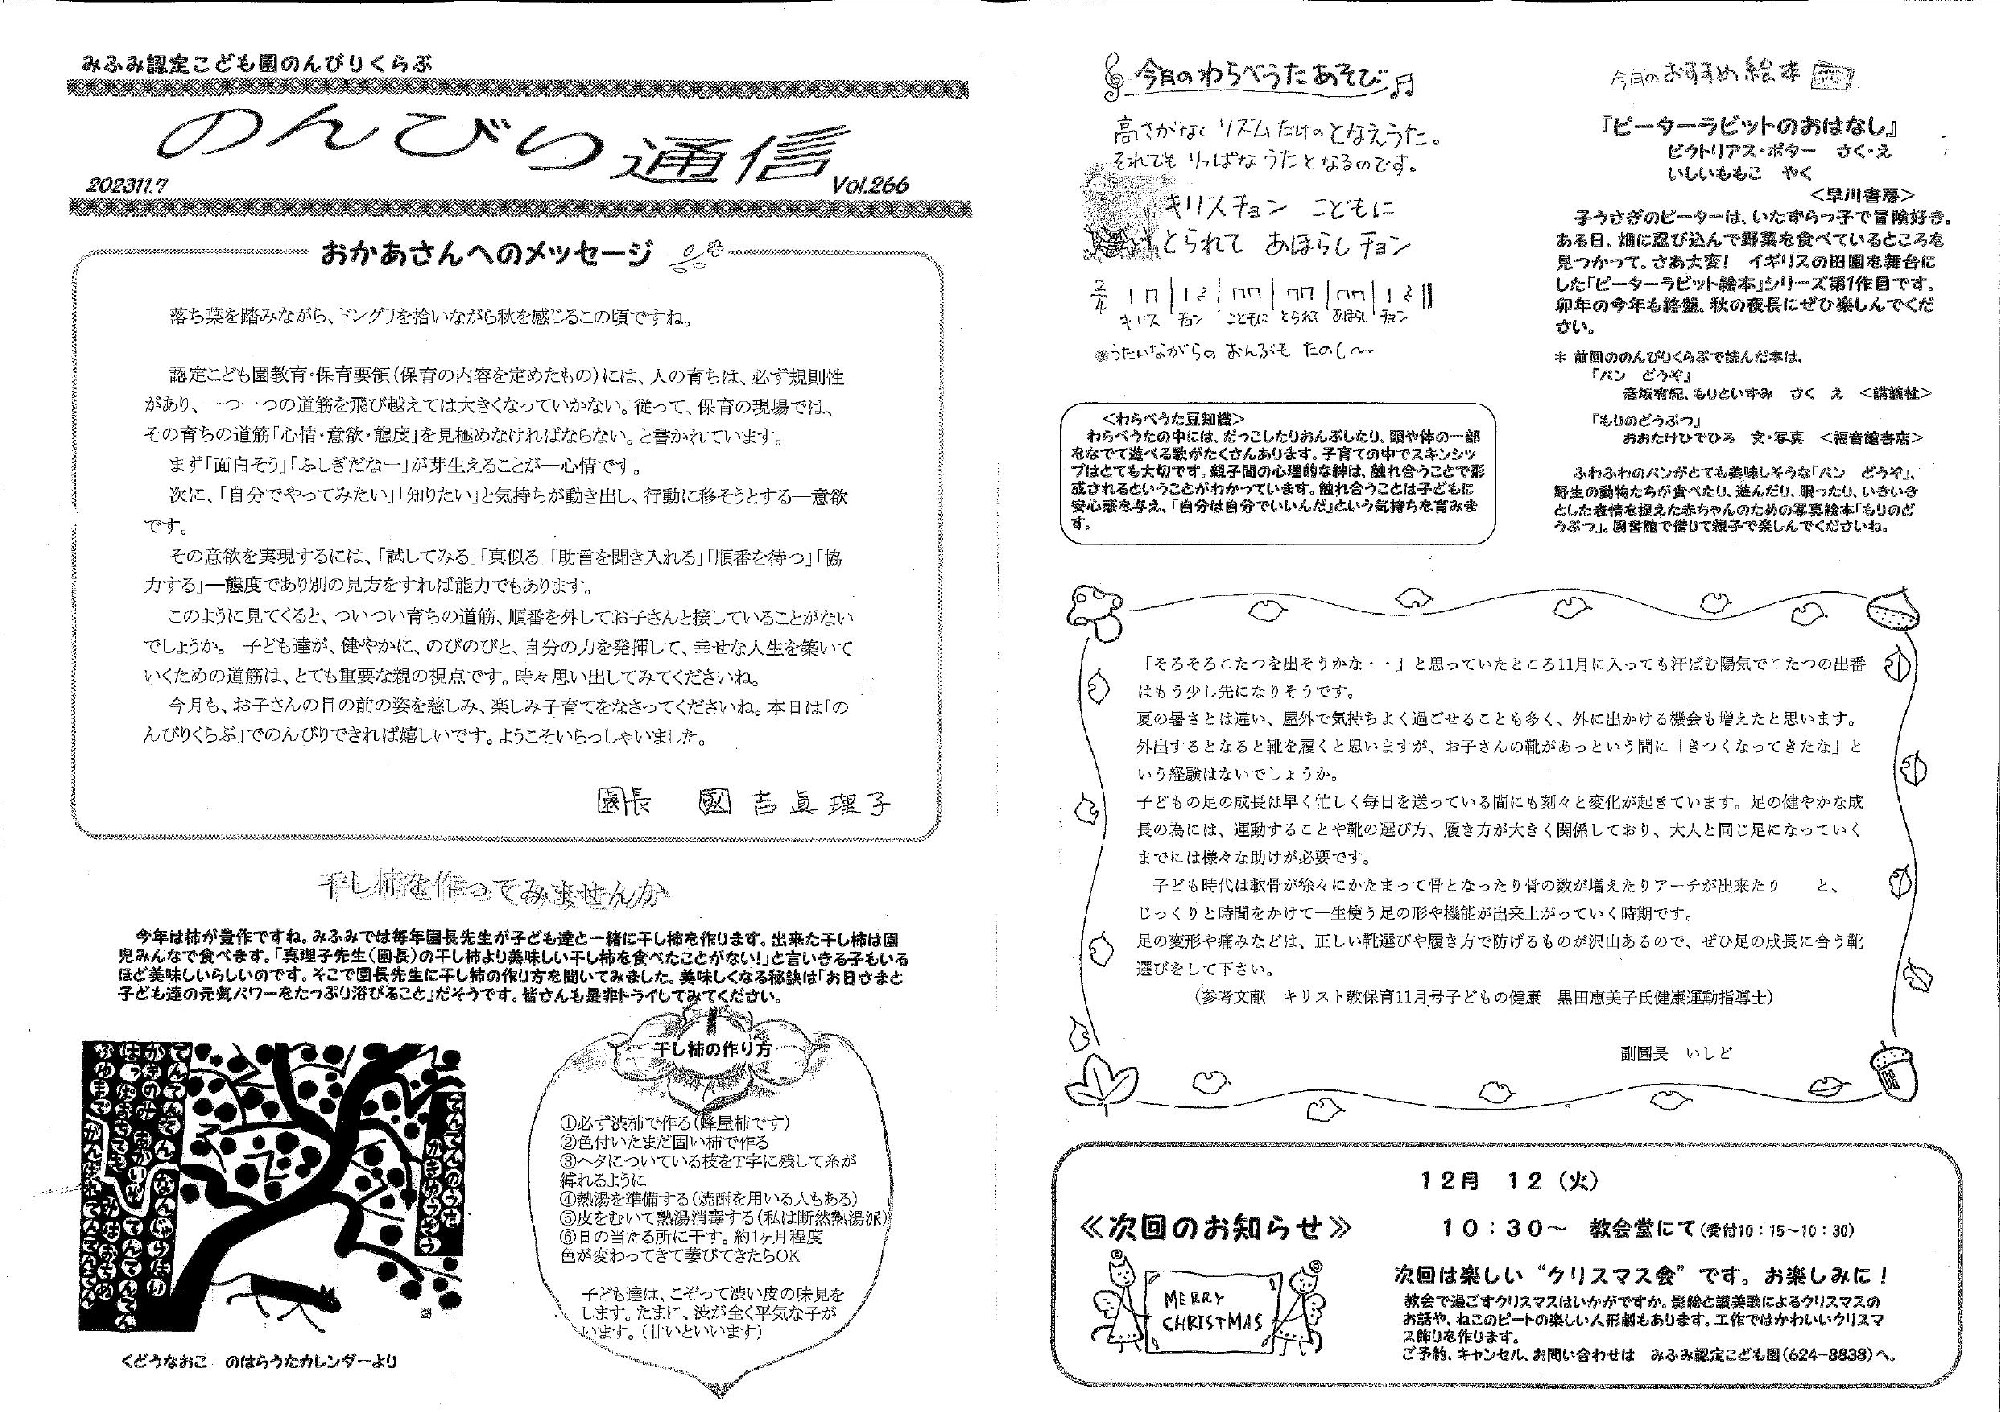 みふみ認定こども園のんびりくらぶ
のんびり通信
2023.11.7
Vol.266
おかあさんへのメッセージ
落ち葉を踏みながら、ドングリを拾いながら秋を感じるこの頃ですね。
認定こども園教育・保育要領(保育の内容を定めたもの)には、人の育ちは、必ず規則性
があり、一つ一つの道筋を飛び越えては大きくなっていかない。従って、保育の現場では、
その育ちの道筋「心情・意欲・態度」を見極めなければならない。と書かれています。
まず「面白そう」「ふしぎだなー」が芽生えることが―心情です。
次に、「自分でやってみたい」「知りたい」と気持ちが動き出し、行動に移そうとする―意欲
です。
その意欲を実現するには、「試してみる」「真似る」「助言を聞き入れる」「順番を待つ」「協
力する」―態度であり別の見方をすれば能力でもあります。
このように見てくると、ついつい育ちの道筋、順番を外してお子さんと接していることがない
でしょうか。 子ども達が、健やかに、のびのびと、自分の力を発揮して、幸せな人生を築いて
いくための道筋は、とても重要な親の視点です。時々思い出してみてくださいね。
今月も、お子さんの目の前の姿を慈しみ、楽しみ子育てをなさってくださいね。本日は「の
んびりくらぶ」でのんびりできれば嬉しいです。ようこそいらっしゃいました。
園長 國吉眞理子
干し柿を作ってみませんか
今年は柿が豊作ですね。みふみでは毎年園長先生が子ども達と一緒に干し柿を作ります。出来た干し柿は園
児みんなで食べます。「真理子先生(園長)の干し柿より美味しい干し柿を食べたことがない!」と言いきる子もいる
ほど美味しいらしいのです。そこで園長先生に干し柿の作り方を聞いてみました。美味しくなる秘訣は「お日さまと
子ども達の元気パワーをたっぷり浴びること」だそうです。皆さんも是非トライしてみてください。
くどうなおこ のはらうたカレンダーより
干し柿の作り方
①必ず渋柿で作る(蜂屋柿です)
②色付いたまだ固い柿で作る
③ヘタについている枝をT字に残して糸が
縛れるように
④熱湯を準備する(焼酎を用いる人もある)
⑤皮をむいて熱湯消毒する(私は断然熱湯派)
⑥日の当たる所に干す。約1ヶ月程度
色が変わってきて萎びてきたらOK
子ども達は、こぞって渋い皮の味見を
します。たまに、渋が全く平気な子が
います。(甘いといいます)
今月のわらべうたあそび
高さがなく リズムだけのとなえうた。
それでも りっぱな うたと なるのです。
キリスチョン こどもに
とられて あほらし チョン
2/4
キリス チョン こどもに とられて あほらし チョン
※うたいながらの おんぶも たのし〜
<わらべうた豆知識>
わらべうたの中には、だっこしたりおんぶしたり、頭や体の一部
をなでて遊べる歌がたくさんあります。子育ての中でスキンシッ
プはとても大切です。親子間の心理的な絆は、触れ合うことで形
成されるということがわかっています。触れ合うことは子どもに
安心感を与え、「自分は自分でいいんだ」という気持ちを育みま
す。
今月のおすすめ絵本
『ピーターラビットのおはなし』
ビクトリアス・ポター さく・え
いしいももこ やく
<早川書房>
子うさぎのピーターは、いたずらっ子で冒険好き。
ある日、畑に忍び込んで野菜を食べているところを
見つかって。さあ大変! イギリスの田園を舞台に
した「ピーターラビット絵本」シリーズ第1作目です。
卯年の今年も終盤、秋の夜長にぜひ楽しんでくだ
さい。
* 前回ののんびりくらぶで読んだ本は、
「パン どうぞ」
彦坂有紀、もりといずみ さく え <講談社>
「もりのどうぶつ」
おおたけひでひろ 文・写真 <福音館書店>
ふわふわのパンがとても美味しそうな「パン どうぞ」、
野生の動物たちが食べたり、遊んだり、眠ったり、いきいき
とした表情を捉えた赤ちゃんのための写真絵本「もりのど
うぶつ」。図書館で借りて親子で楽しんでくださいね。
「そろそろこたつを出そうかな・・」と思っていたところ11月に入っても汗ばむ陽気でこたつの出番
はもう少し先になりそうです。
夏の暑さとは違い、屋外で気持ちよく過ごせることも多く、外に出かける機会も増えたと思います。
外出するとなると靴を履くと思いますが、お子さんの靴があっという間に「きつくなってきたな」と
いう経験はないでしょうか。
子どもの足の成長は早く忙しく毎日を送っている間にも刻々と変化が起きています。足の健やかな成
長の為には、運動することや靴の選び方、履き方が大きく関係しており、大人と同じ足になっていく
までには様々な助けが必要です。
子ども時代は軟骨が徐々にかたまって骨となったり骨の数が増えたりアーチが出来たり と、
じっくりと時間をかけて一生使う足の形や機能が出来上がっていく時期です。
足の変形や痛みなどは、正しい靴選びや履き方で防げるものが沢山あるので、ぜひ足の成長に合う靴
選びをして下さい。
(参考文献 キリスト教保育11月号子どもの健康 黒田恵美子氏健康運動指導士)
副園長 いしど
≪次回のお知らせ≫
12月 12(火)
10:30〜 教会堂にて(受付10:15〜10:30)
次回は楽しい "クリスマス会" です。お楽しみに!
教会で過ごすクリスマスはいかがですか。影絵と讃美歌によるクリスマスの
お話や、ねこのピートの楽しい人形劇もあります。工作ではかわいいクリスマ
ス飾りを作ります。
ご予約、キャンセル、お問い合わせは みふみ認定こども園(624-8838)へ。
MERRY
CHRISTMAS